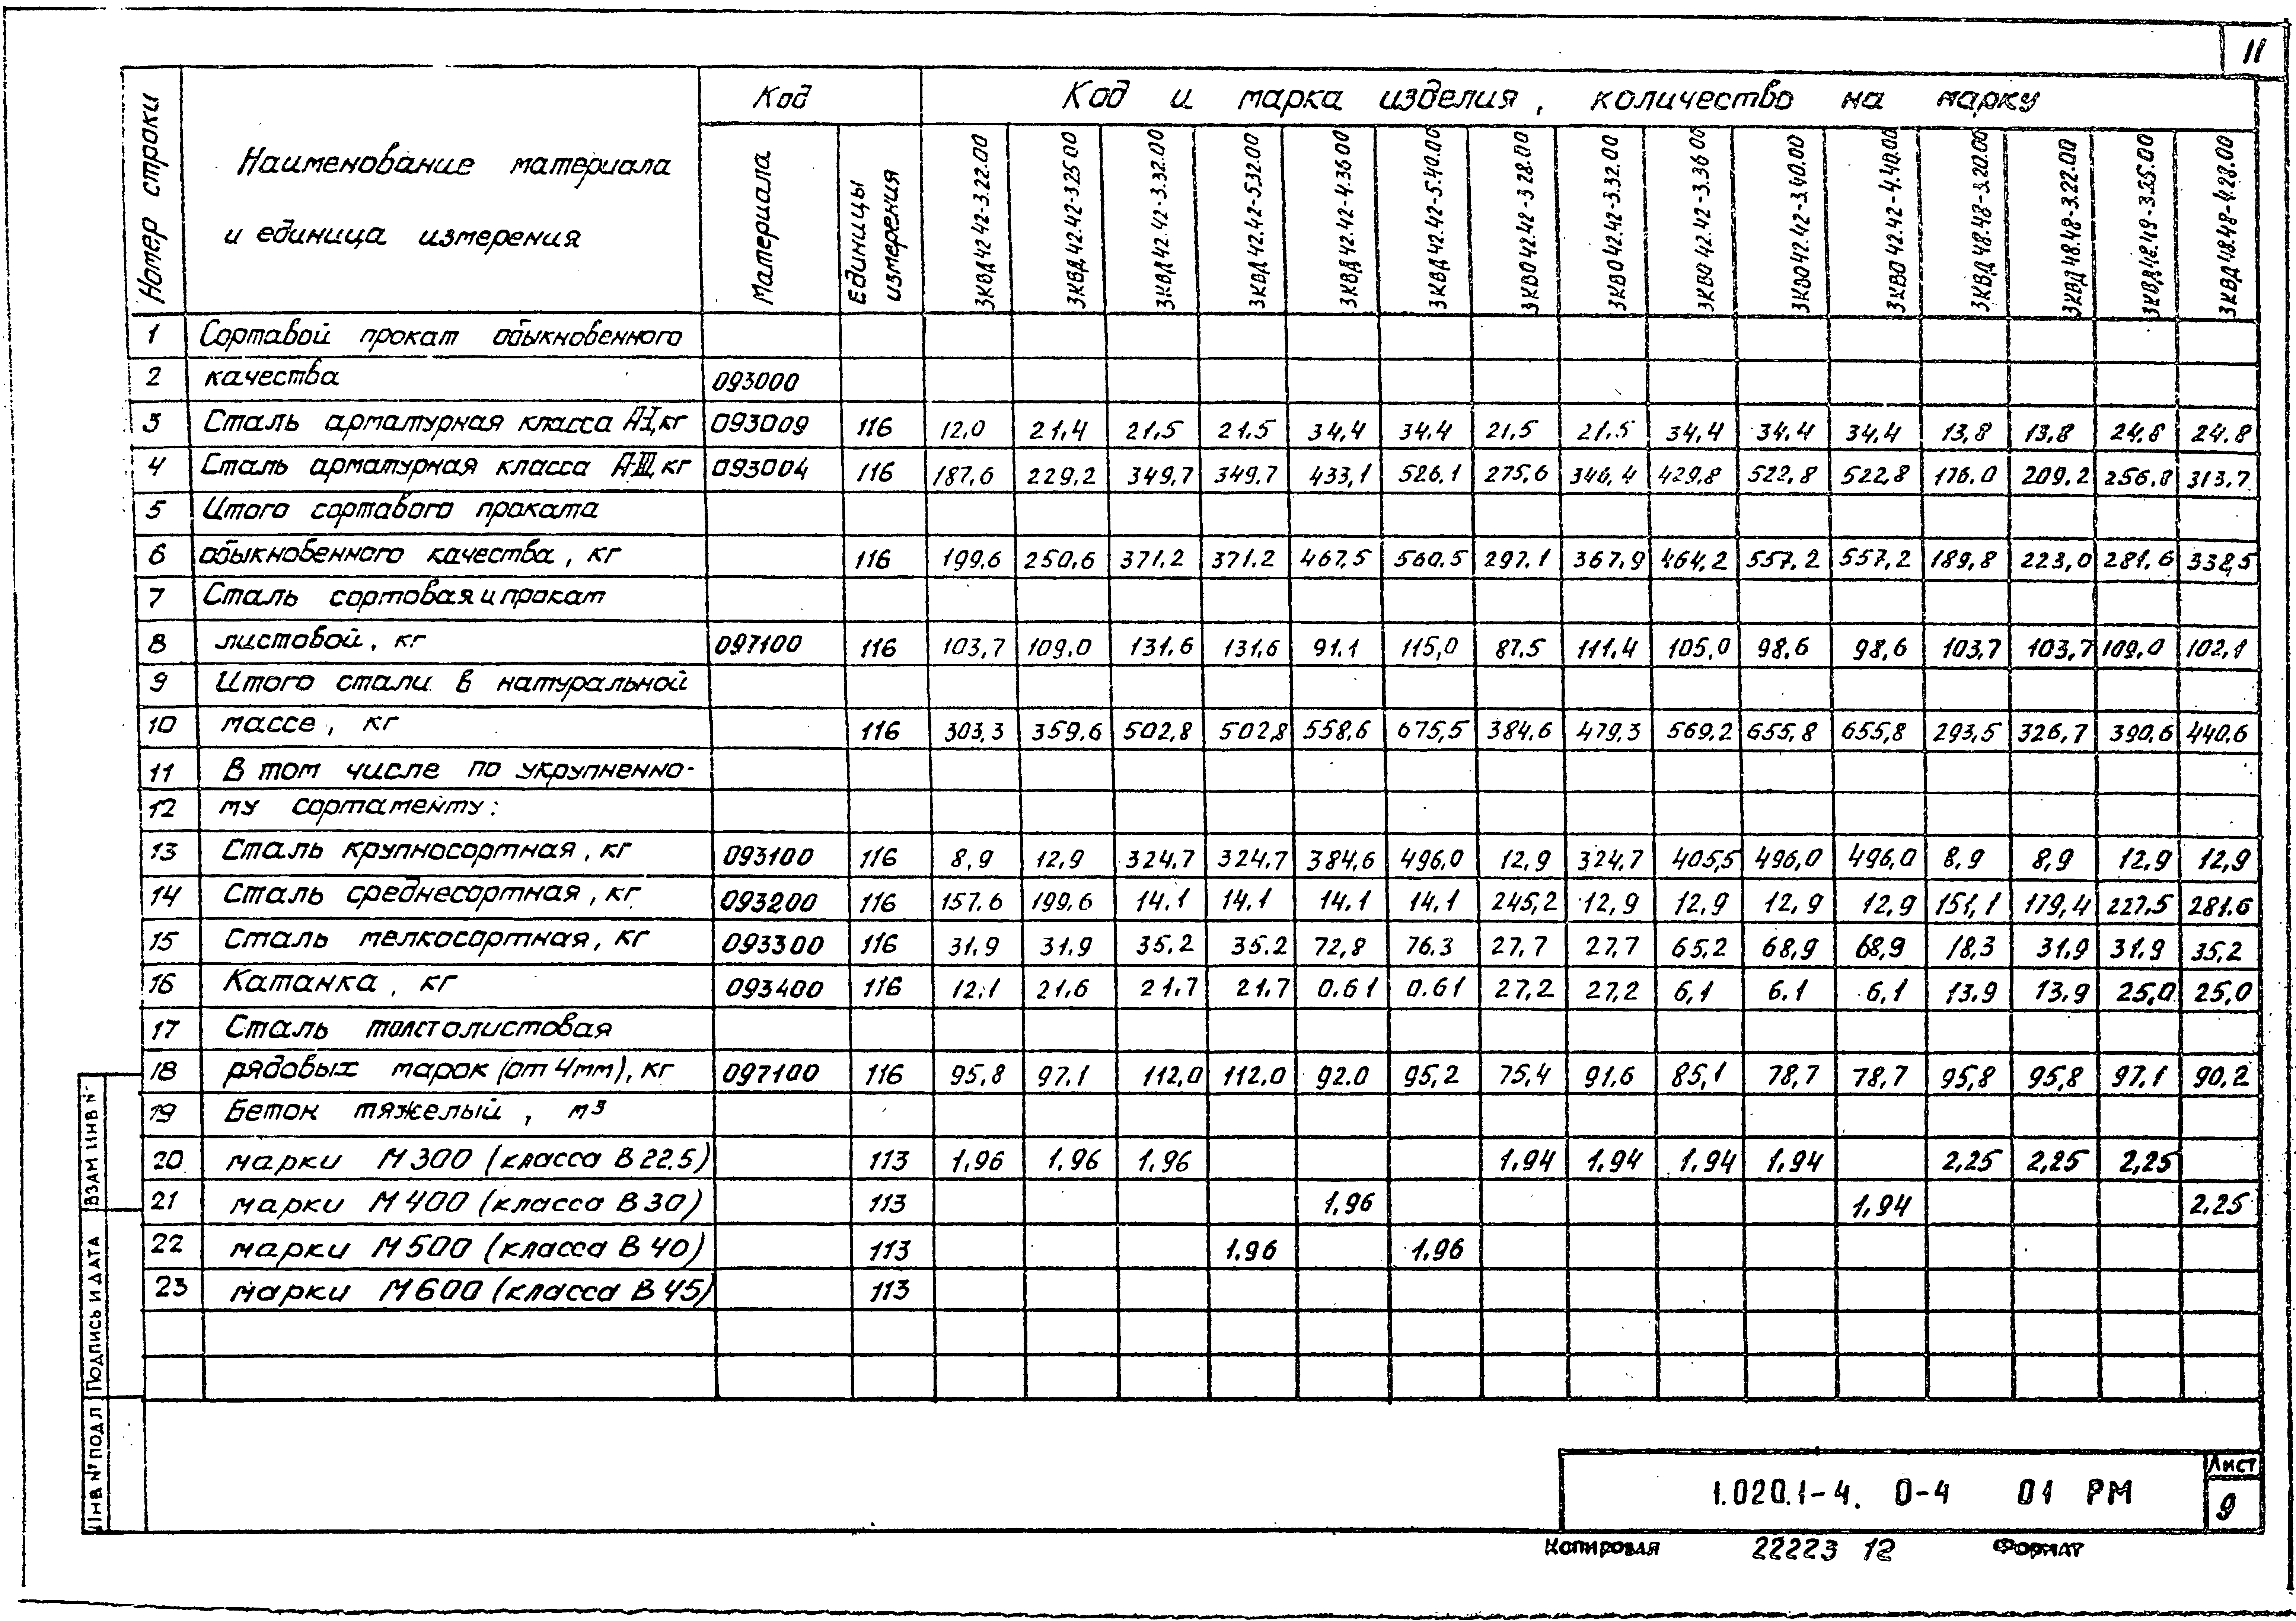 11
Номер строки
Наименование материала
и единица измерения
Код
Материала
Единицы измерения
Код и марка изделия, количество на марку
3КВД 42.42-3.22.00
3КВД 42.42-3.25.00
3КВД 42.42-3.32.00
3КВД 42.42-5.32.00
3КВД 42.42-4.36.00
3КВД 42.42-5.40.00
3КВО 42.42-3.28.00
3КВО 42.42-3.32.00
3КВО 42.42-3.36.00
3КВО 42.42-3.40.00
3КВО 42.42-4.40.00
3КВД 48.48-3.20.00
3КВД 48.48-3.22.00
3КВД 48.48-3.25.00
3КВД 48.48-4.28.00
1 Сортавой прокат обыкновенного
2 качества 093000
3 Сталь арматурная класса А-I, кг 093009 116 12,0 21,4 21,5 21.5 34,4 34.4 21,5 21,5 34,4 34.4 34,4 13,8 13,8 24,8 24,8
4 Сталь арматурная класса А-III, кг 093004 116 187,6 229,2 349,7 349,7 433,1 526,1 275,6 346,4 429,8 522,8 522,8 176,0 209,2 256,8 313,7
5 Итого сортавого проката
6 обыкновенного качества, кг 116 199,6 250,6 371,2 371.2 467,5 560,5 297.1 367,9 464,2 557,2 557,2 189,8 223,0 281,6 338,5
7 Сталь сортовая и прокат
8 листовой, кг 097100 116 103,7 109,0 131,6 131,6 91.1 115,0 87.5 111,4 105,0 98,6 98,6 103,7 103,7 109,0 102,1
9 Итого стали в натуральной
10 массе, кг 116 303,3 359.6 502,8 502,8 558,6 675,5 384,6 479,3 569,2 655,8 655,8 293,5 326,7 390,6 440,6
11 В том числе по укрупненно-
12 му сортаменту:
13 Сталь крупносортная, кг 093100 116 8,9 12,9 324,7 324,7 384,6 496,0 12,9 324,7 405,5 496,0 496,0 8,9 8,9 12,9 12,9
14 Сталь среднесортная, кг 093200 116 157.6 199,6 14.1 14.1 14.1 14.1 245,2 12,9 12,9 12,9 12,9 151,1 179,4 227,5 281.6
15 Сталь мелкосортная, кг 093300 116 31.9 31.9 35.2 35.2 72,8 76.3 27,7 27,7 65,2 68,9 68,9 18,3 31,9 31.9 35,2
16 Катанка, кг 093400 116 12,1 21.6 21.7 21.7 0.61 0.61 27,2 27,2 6,1 6.1 6,1 13.9 13.9 25,0 25,0
17 Сталь толстолистовая
18 рядовых марок (от 4мм), кг 097100 116 95,8 97.1 112,0 112,0 92.0 95,2 75,4 91.6 85,1 78,7 78,7 95,8 95,8 97.1 90,2
19 Бетон тяжелый, м3
20 марки М300 (класса В22.5) 113 1,96 1.96 1.96 1,94 1,94 1,94 1,94 2,25 2,25 2,25
21 марки М400 (класса В30) 113 1.96 1,94 2.25
22 марки М500 (класса В40) 113 1.96 1.96
23 марки М600 (класса В45) 113
ВЗАМ ИНВ №
Подпись и дата
Инв № подл
1.020.1-4. 0-4 01 РМ
Лист
9
Копировал 22223 12 Формат